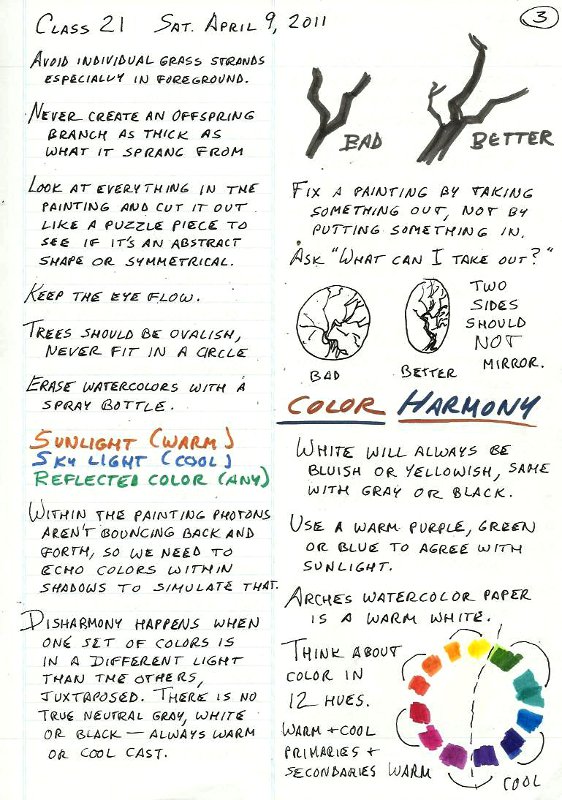 CLASS 21 SAT. APRIL 9, 2011
3
AVOID INDIVIDUAL GRASS STRANDS
ESPECIALLY IN FOREGROUND.
NEVER CREATE AN OFFSPRING
BRANCH AS THICK AS
WHAT IT SPRANG FROM
LOOK AT EVERYTHING IN THE
PAINTING AND CUT IT OUT
LIKE A PUZZLE PIECE TO
SEE IF IT'S AN ABSTRACT
SHAPE OR SYMMETRICAL.
KEEP THE EYE FLOW.
TREES SHOULD BE OVALISH,
NEVER FIT IN A CIRCLE
ERASE WATERCOLORS WITH A
SPRAY BOTTLE.
SUNLIGHT (WARM)
SKY LIGHT (COOL)
REFLECTED COLOR (ANY)
WITHIN THE PAINTING PHOTONS
AREN'T BOUNCING BACK AND
FORTH, SO WE NEED TO
ECHO COLORS WITHIN
SHADOWS TO SIMULATE THAT.
DISHARMONY HAPPENS WHEN
ONE SET OF COLORS IS
IN A DIFFERENT LIGHT
THAN THE OTHERS,
JUXTAPOSED. THERE IS NO
TRUE NEUTRAL GRAY, WHITE
OR BLACK — ALWAYS WARM
OR COOL CAST.
BAD
BETTER
FIX A PAINTING BY TAKING
SOMETHING OUT, NOT BY
PUTTING SOMETHING IN.
ASK "WHAT CAN I TAKE OUT?"
BAD
BETTER
TWO
SIDES
SHOULD
NOT
MIRROR.
COLOR HARMONY
WHITE WILL ALWAYS BE
BLUISH OR YELLOWISH, SAME
WITH GRAY OR BLACK.
USE A WARM PURPLE, GREEN
OR BLUE TO AGREE WITH
SUNLIGHT.
ARCHES WATERCOLOR PAPER
IS A WARM WHITE.
THINK ABOUT
COLOR IN
12 HUES.
WARM + COOL
PRIMARIES +
SECONDARIES
WARM
COOL